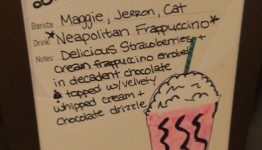 Barista: Maggie, Jerron, Cat
Drink: *Neapolitan Frappuccino*
Notes: Delicious Strawberries +
cream frappuccino enrobed
in decadent chocolate
& topped w/velvety
whipped cream +
chocolate drizzle.